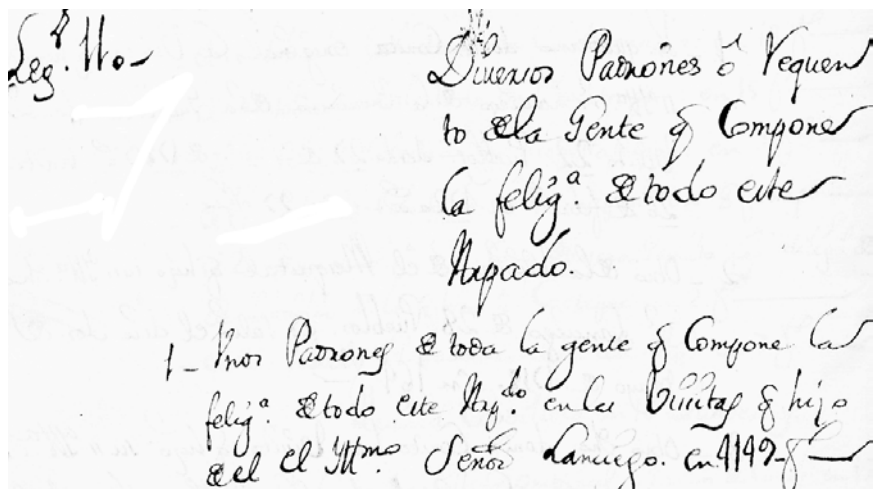 Leg.º 11º-
Diversos Padrones ó requen
to de la Gente q Compone
la felig.ª de todo este
1- Unos Padrones de toda la gente q Compone la
felig.ª de todo este en las Visitas q hizo
de el el Ill.mo Señor